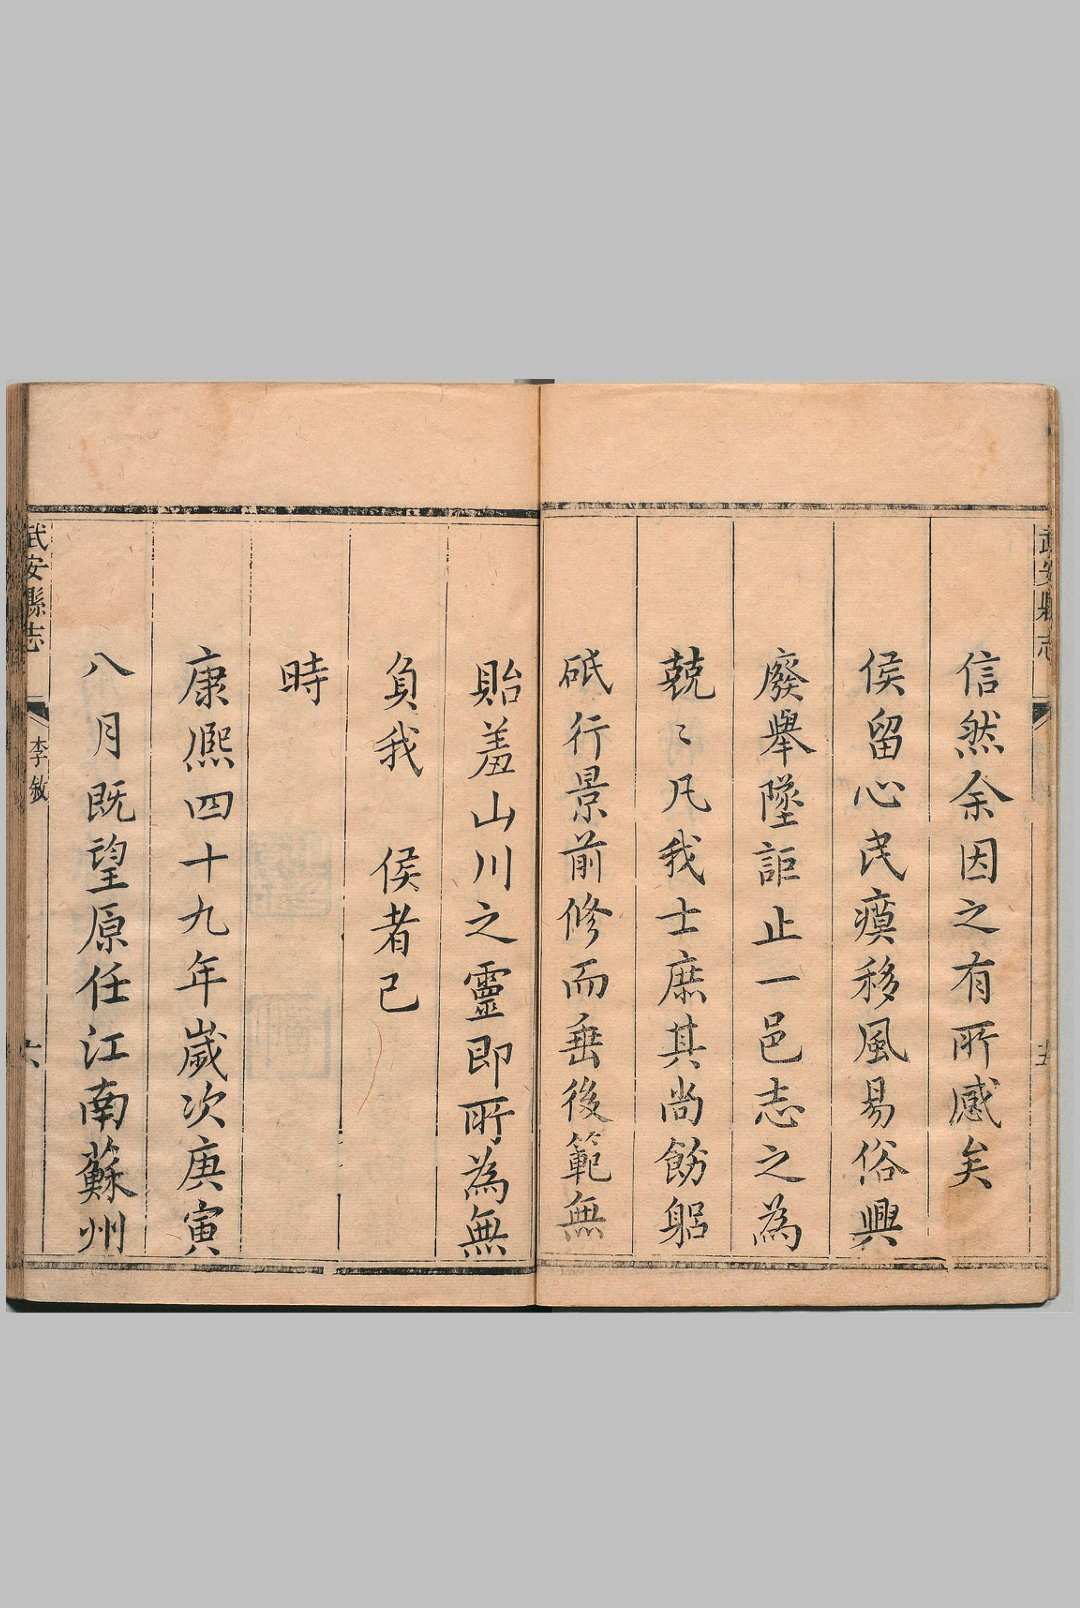 武安縣志
五
信然余因之有所感矣
侯留心民瘼移風易俗興
廢舉墜詎止一邑志之為
兢〻凡我士庶其尚飭躬
砥行景前修而垂後範無
貽羞山川之靈即所為無
負我　侯者已
時
康熈四十九年歲次庚寅
八月既望原任江南蘇州
武安縣志
李敘
六